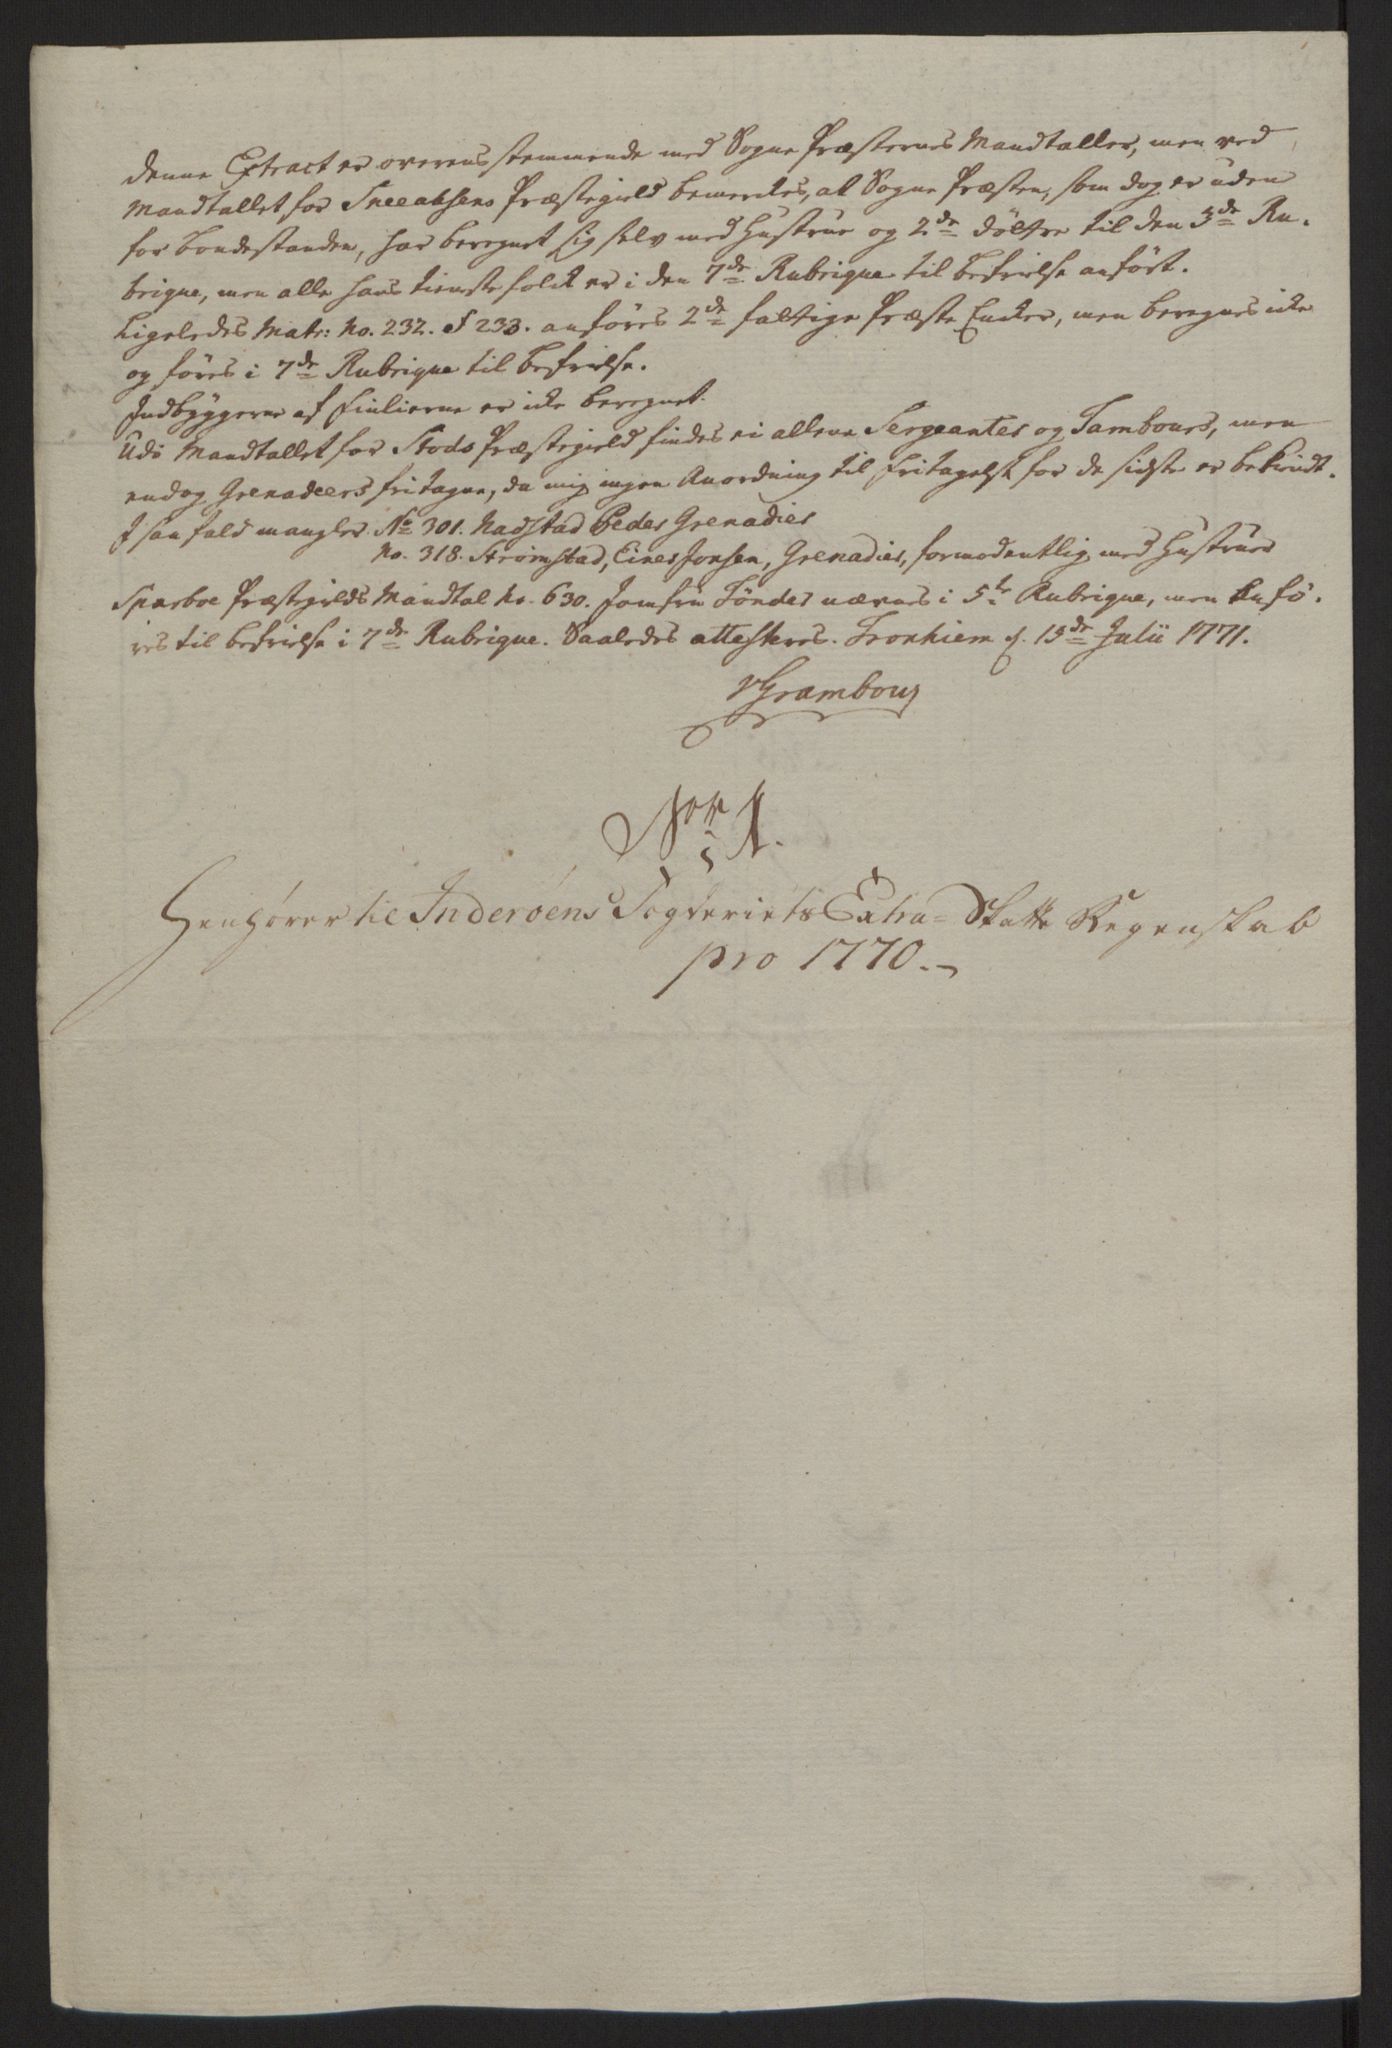 Denne Extract er overensstemmende med Sogne Præsternes Mandtaller, men ved
Mandtallet for Sneeaasens Præstegield bemerkes, at Sogne Præsten, som dog er uden
for bondestanden, har beregnet sig selv med Hustrue og 2de døttre til den 3de Ru-
brique, men alle hans tienestefolk er i den 7de Rubrique til befrielse anført.
Ligeledes Matr: No. 232. & 233. anføres 2de fattige Præste Encker, men beregnes icke
og føres i 7de Rubrique til befrielse.
Indbyggerne af Finlierne er icke beregnet.
Udi Mandtallet for Stods Præstegield findes ei allene Sergeanter og Tambours, men
endog Grenadeers fritagne, da mig ingen Anordning til Fritagelse for de sidste er bekiendt.
I saa fald mangler No 301. Nadstad Peder Grenadier
No. 318. Strømstad, Einer Jonsen, Grenadier, formodentlig med Hustruer
Sparboe Præstegields Mandtal No. 630. Jomfru Tønder nævnes i 5te Rubrique, men anfø-
res til befrielse i 7de Rubrique. Saaledes attesteres. Tronhiem d. 15de Julii 1771.
Hensører til Inderøens Fogderiets Extra-Skatte Regenskab
pro 1770.